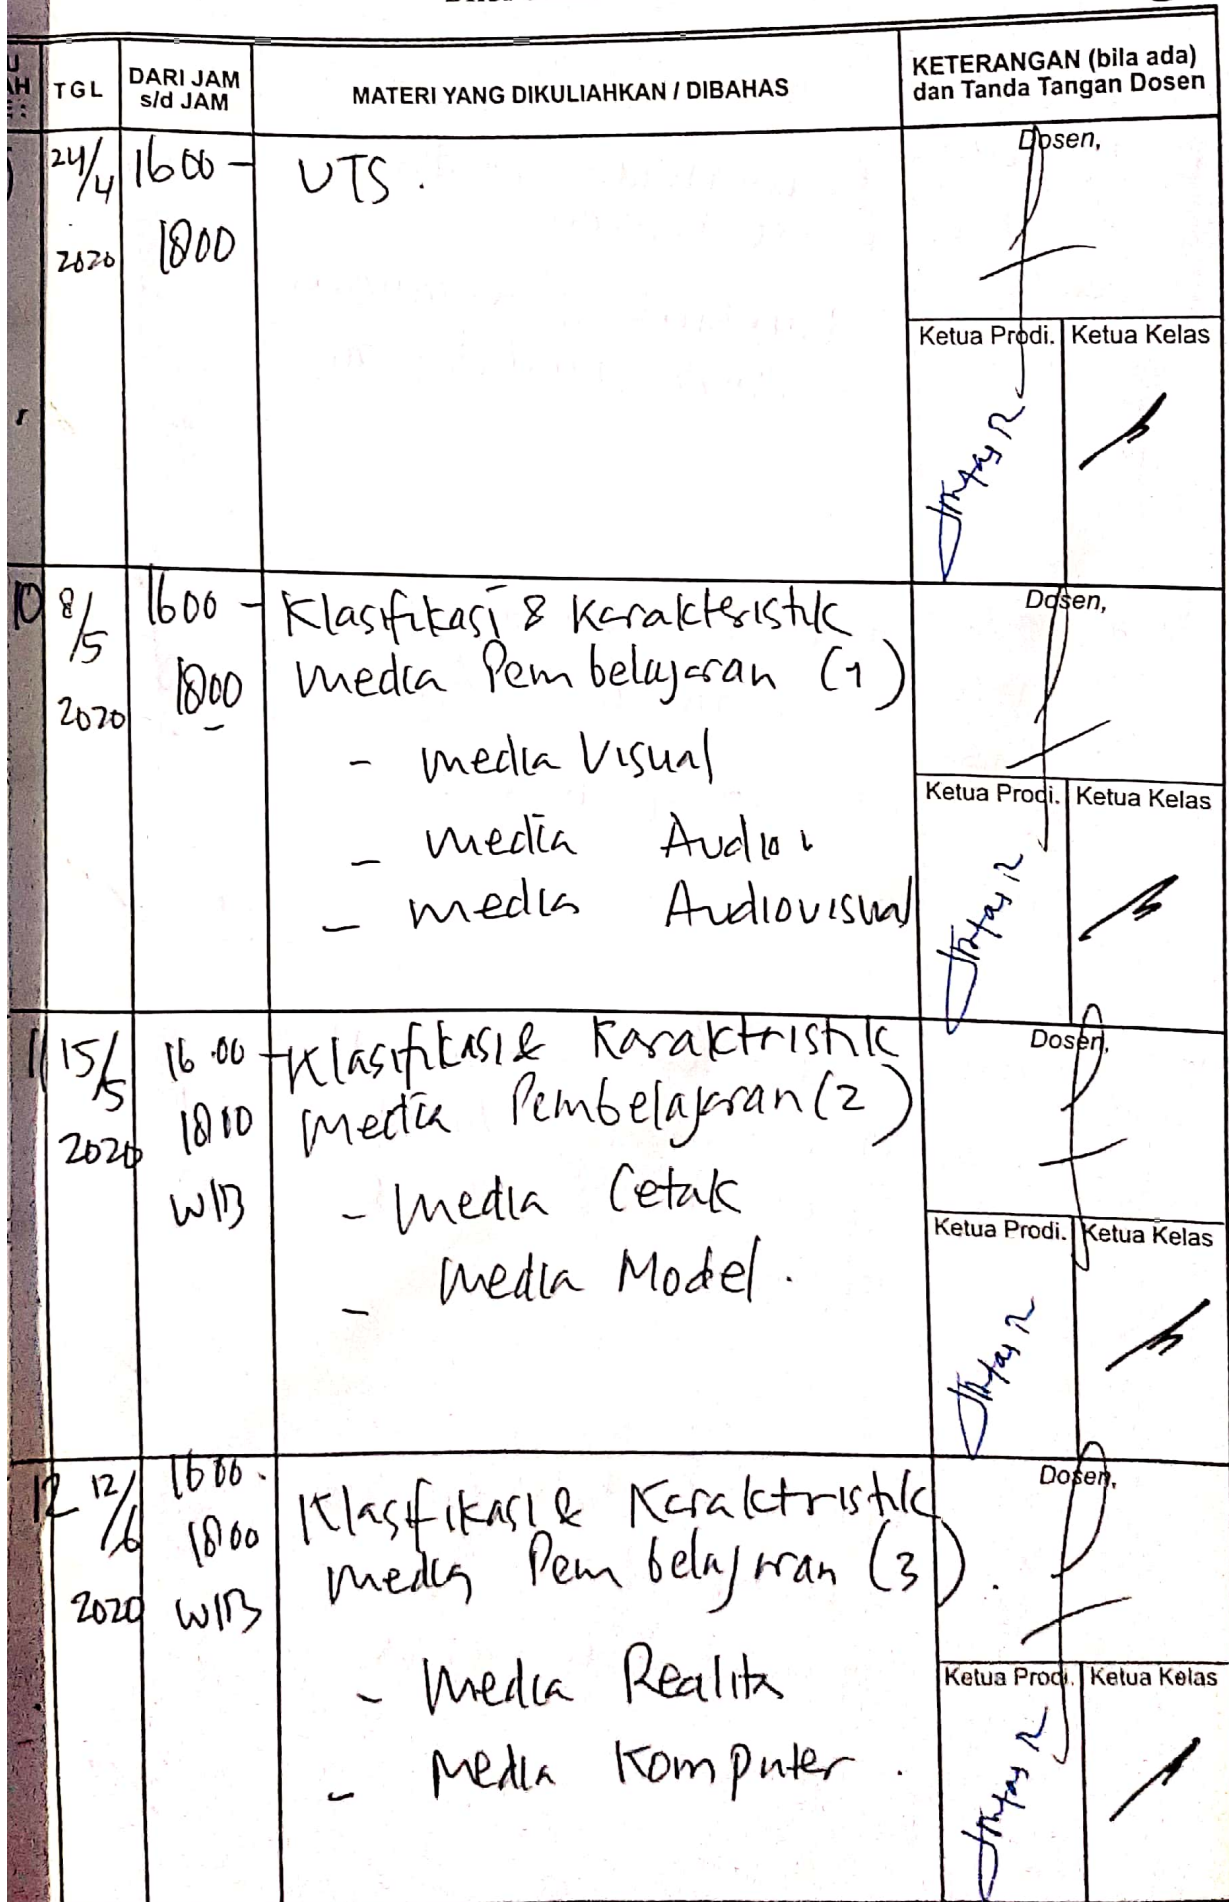 TGL
DARI JAM
s/d JAM
MATERI YANG DIKULIAHKAN / DIBAHAS
KETERANGAN (bila ada)
dan Tanda Tangan Dosen
24/4
2020
1600 -
1800
UTS.
Dosen,
Ketua Prodi.
Ketua Kelas
10
8/5
2020
1600 -
1800
Klasifikasi & Karakteristik
Media Pembelajaran (1)
- Media Visual
- Media Audio
- Media Audiovisual
Dosen,
Ketua Prodi.
Ketua Kelas
11
15/5
2020
16.00 -
1800
WIB
Klasifikasi & Karaktristik
Media Pembelajaran (2)
- Media Cetak
- Media Model.
Dosen,
Ketua Prodi.
Ketua Kelas
12
12/6
2020
1600.
1800
WIB
Klasifikasi & Karaktristik
Media Pembelajaran (3).
- Media Realita
- Media Komputer.
Dosen,
Ketua Prodi.
Ketua Kelas